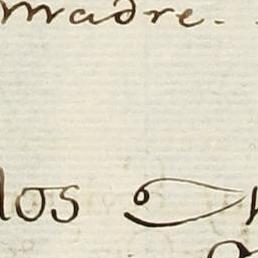 madre.
los